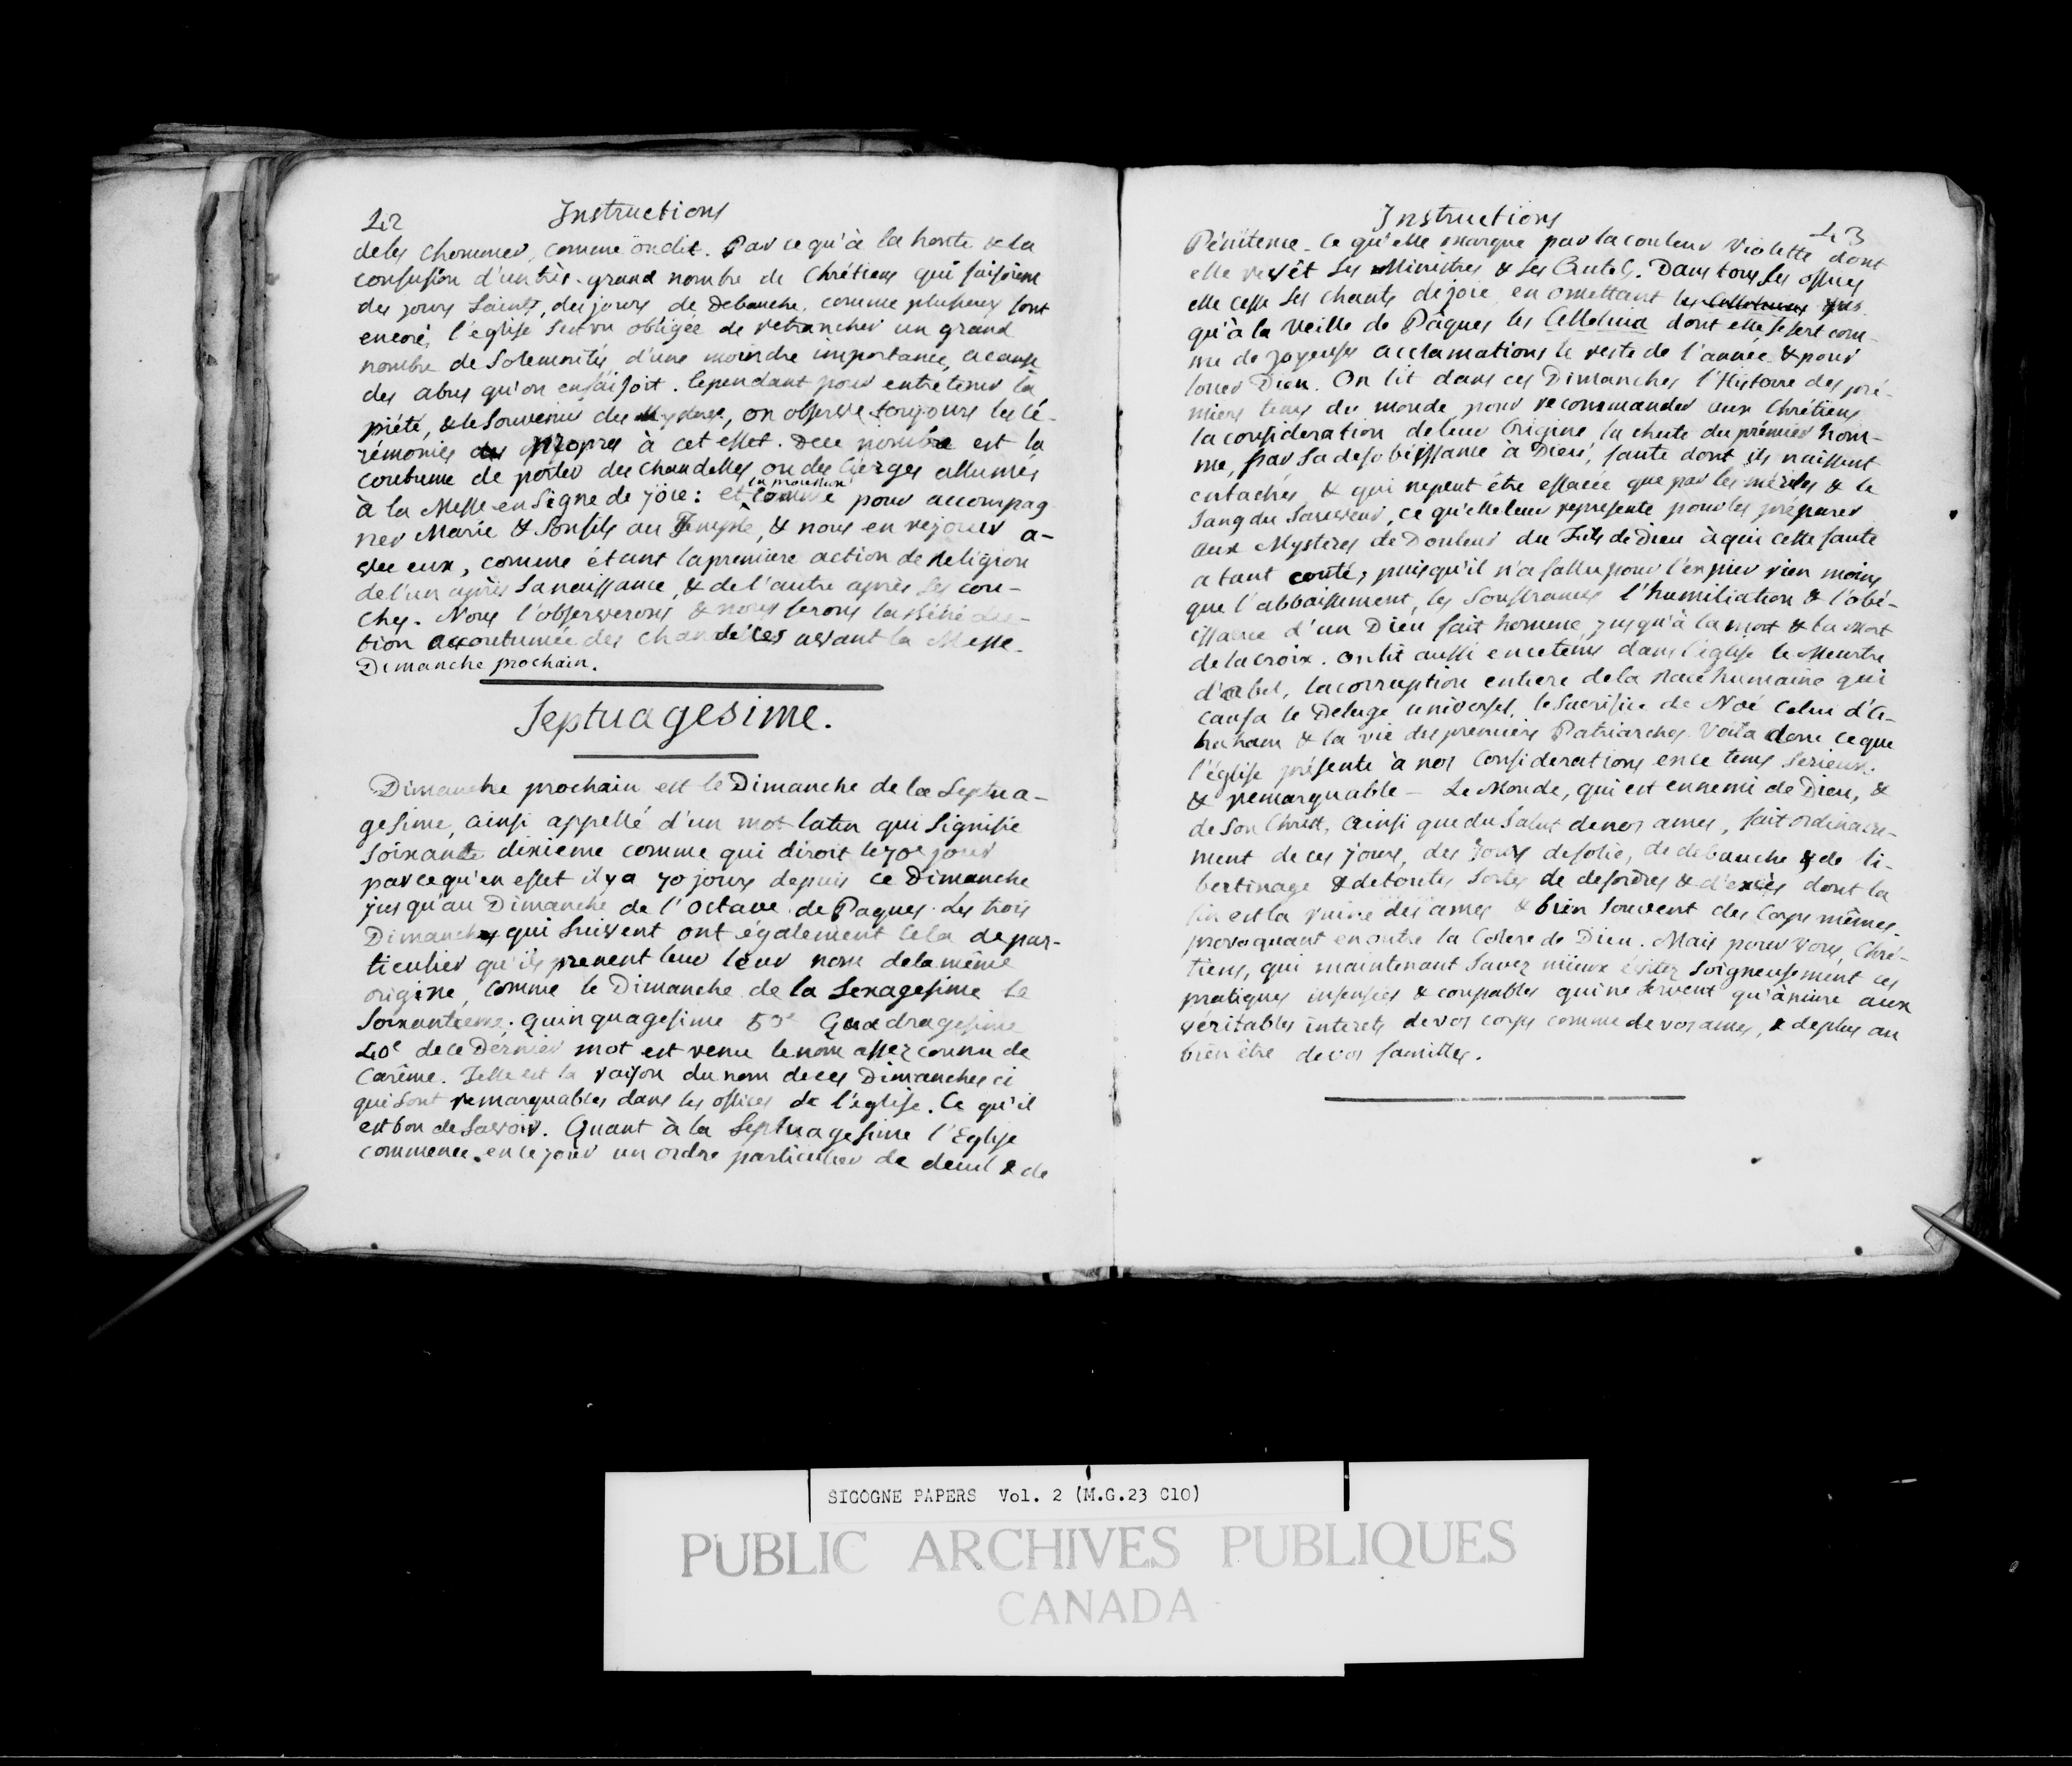 42 Instructions
de les chommer, comme on dit. Par ce qu'à la honte & la
confusion d'un très-grand nombre de Chrétiens qui faisoient
des jours Saints, des jours de Debauche, comme plusieurs font
encore, l'église s'est vu obligée de retrancher un grand
nombre de Solemnités d'une moindre importance, a cause
des abus qu'on en faisoit. Cependant pour entretenir la
piété, & le Souvenir des Mysteres, on observe toujours les cé-
rémonies propres à cet effet. De ce nombre est la
coutume de porter des chandelles ou des Cierges allumés
à la Messe en Signe de joie: et comme en procession pour accompag
ner Marie & Son fils au Temple, & nous en rejouir a-
vec eux, comme étant la premiere action de Religion
de l'un après Sa naissance, & de l'autre après Ses cou-
ches. Nous l'observerons & nous ferons la Bénédic-
tion accoutumée des chandelles avant la Messe.
Dimanche prochain.
Septuagesime.
Dimanche prochain est le Dimanche de la Septua-
gesime, ainsi appellé d'un mot latin qui Signifie
Soixante dixieme comme qui diroit le 70e jour
par ce qu'en effet il y a 70 jours depuis ce Dimanche
jusqu'au Dimanche de l'Octave de Paques. Les trois
Dimanches qui Suivent ont également cela de par-
ticulier qu'ils prenent leur leur nom de la même
origine, comme le Dimanche de la Sexagesime Le
Soixantieme. Quinquagesime 50e Quadragesime
40e de ce Dernier mot est venu le nom assez connu de
Carême. Telle est la raison du nom de ces Dimanches ci
qui Sont remarquables dans les offices de l'église. Ce qu'il
est bon de Savoir. Quant à la Septuagesime l'Eglise
commence en ce jour un ordre particulier de deuil & de
Instructions 43
Pénitence. Ce qu'elle marque par la couleur Violette dont
elle revêt Ses Ministres & Ses Autels. Dans tous Ses offices
elle cesse Ses chants de joie, en omettant les jus
qu'à la Veille de Pâques les Alleluia dont elle se sert com-
me de joyeuses acclamations le reste de l'année & pour
louer Dieu. On lit dans ces Dimanches l'Histoire des pré-
miers tems du monde pour recommander aux Chrétiens
la consideration de leur Origine la chute du prémier hom-
me, par Sa desobéissance à Dieu, faute dont ils naissent
entachés, & qui ne peut être effacée que par les mérites & le
Sang du Sauveur, ce qu'elle leur represente pour les préparer
aux Mysteres de Douleur du Fils de Dieu à qui cette faute
a tant couté, puisqu'il n'a fallu pour l'expier rien moins
que l'abbaissement, les Souffrances l'humiliation & l'obé-
issance d'un Dieu fait homme, jusqu'à la mort & la mort
de la croix. On lit aussi en ce tems dans l'église le Meurtre
d'abel, la corruption entiere de la Race humaine qui
causa le Deluge universel, le Sacrifice de Noé Celui d'A-
braham & la vie des premiers Patriarches. Voila donc ce que
l'église présente à nos Considerations en ce tems Serieux
& remarquable - Le Monde, qui est ennemi de Dieu, &
de Son Christ, ainsi que du Salut de nos ames, fait ordinaire-
ment de ces jours, des jours de folie, de debauche & de li-
bertinage & de toutes Sortes de desordres & d'excès dont la
fin est la ruine des ames & bien Souvent des Corps mêmes,
provoquant en outre la Colere de Dieu. Mais pour vous, Chré-
tiens, qui maintenant Savez mieux évitez Soigneusement ces
pratiques insensées & coupables qui ne Servent qu'à nuire aux
véritables interets de vos corps comme de vos ames, & de plus au
bien être de vos familles.
SICOGNE PAPERS Vol. 2 (M.G.23 C10)
PUBLIC ARCHIVES PUBLIQUES
CANADA